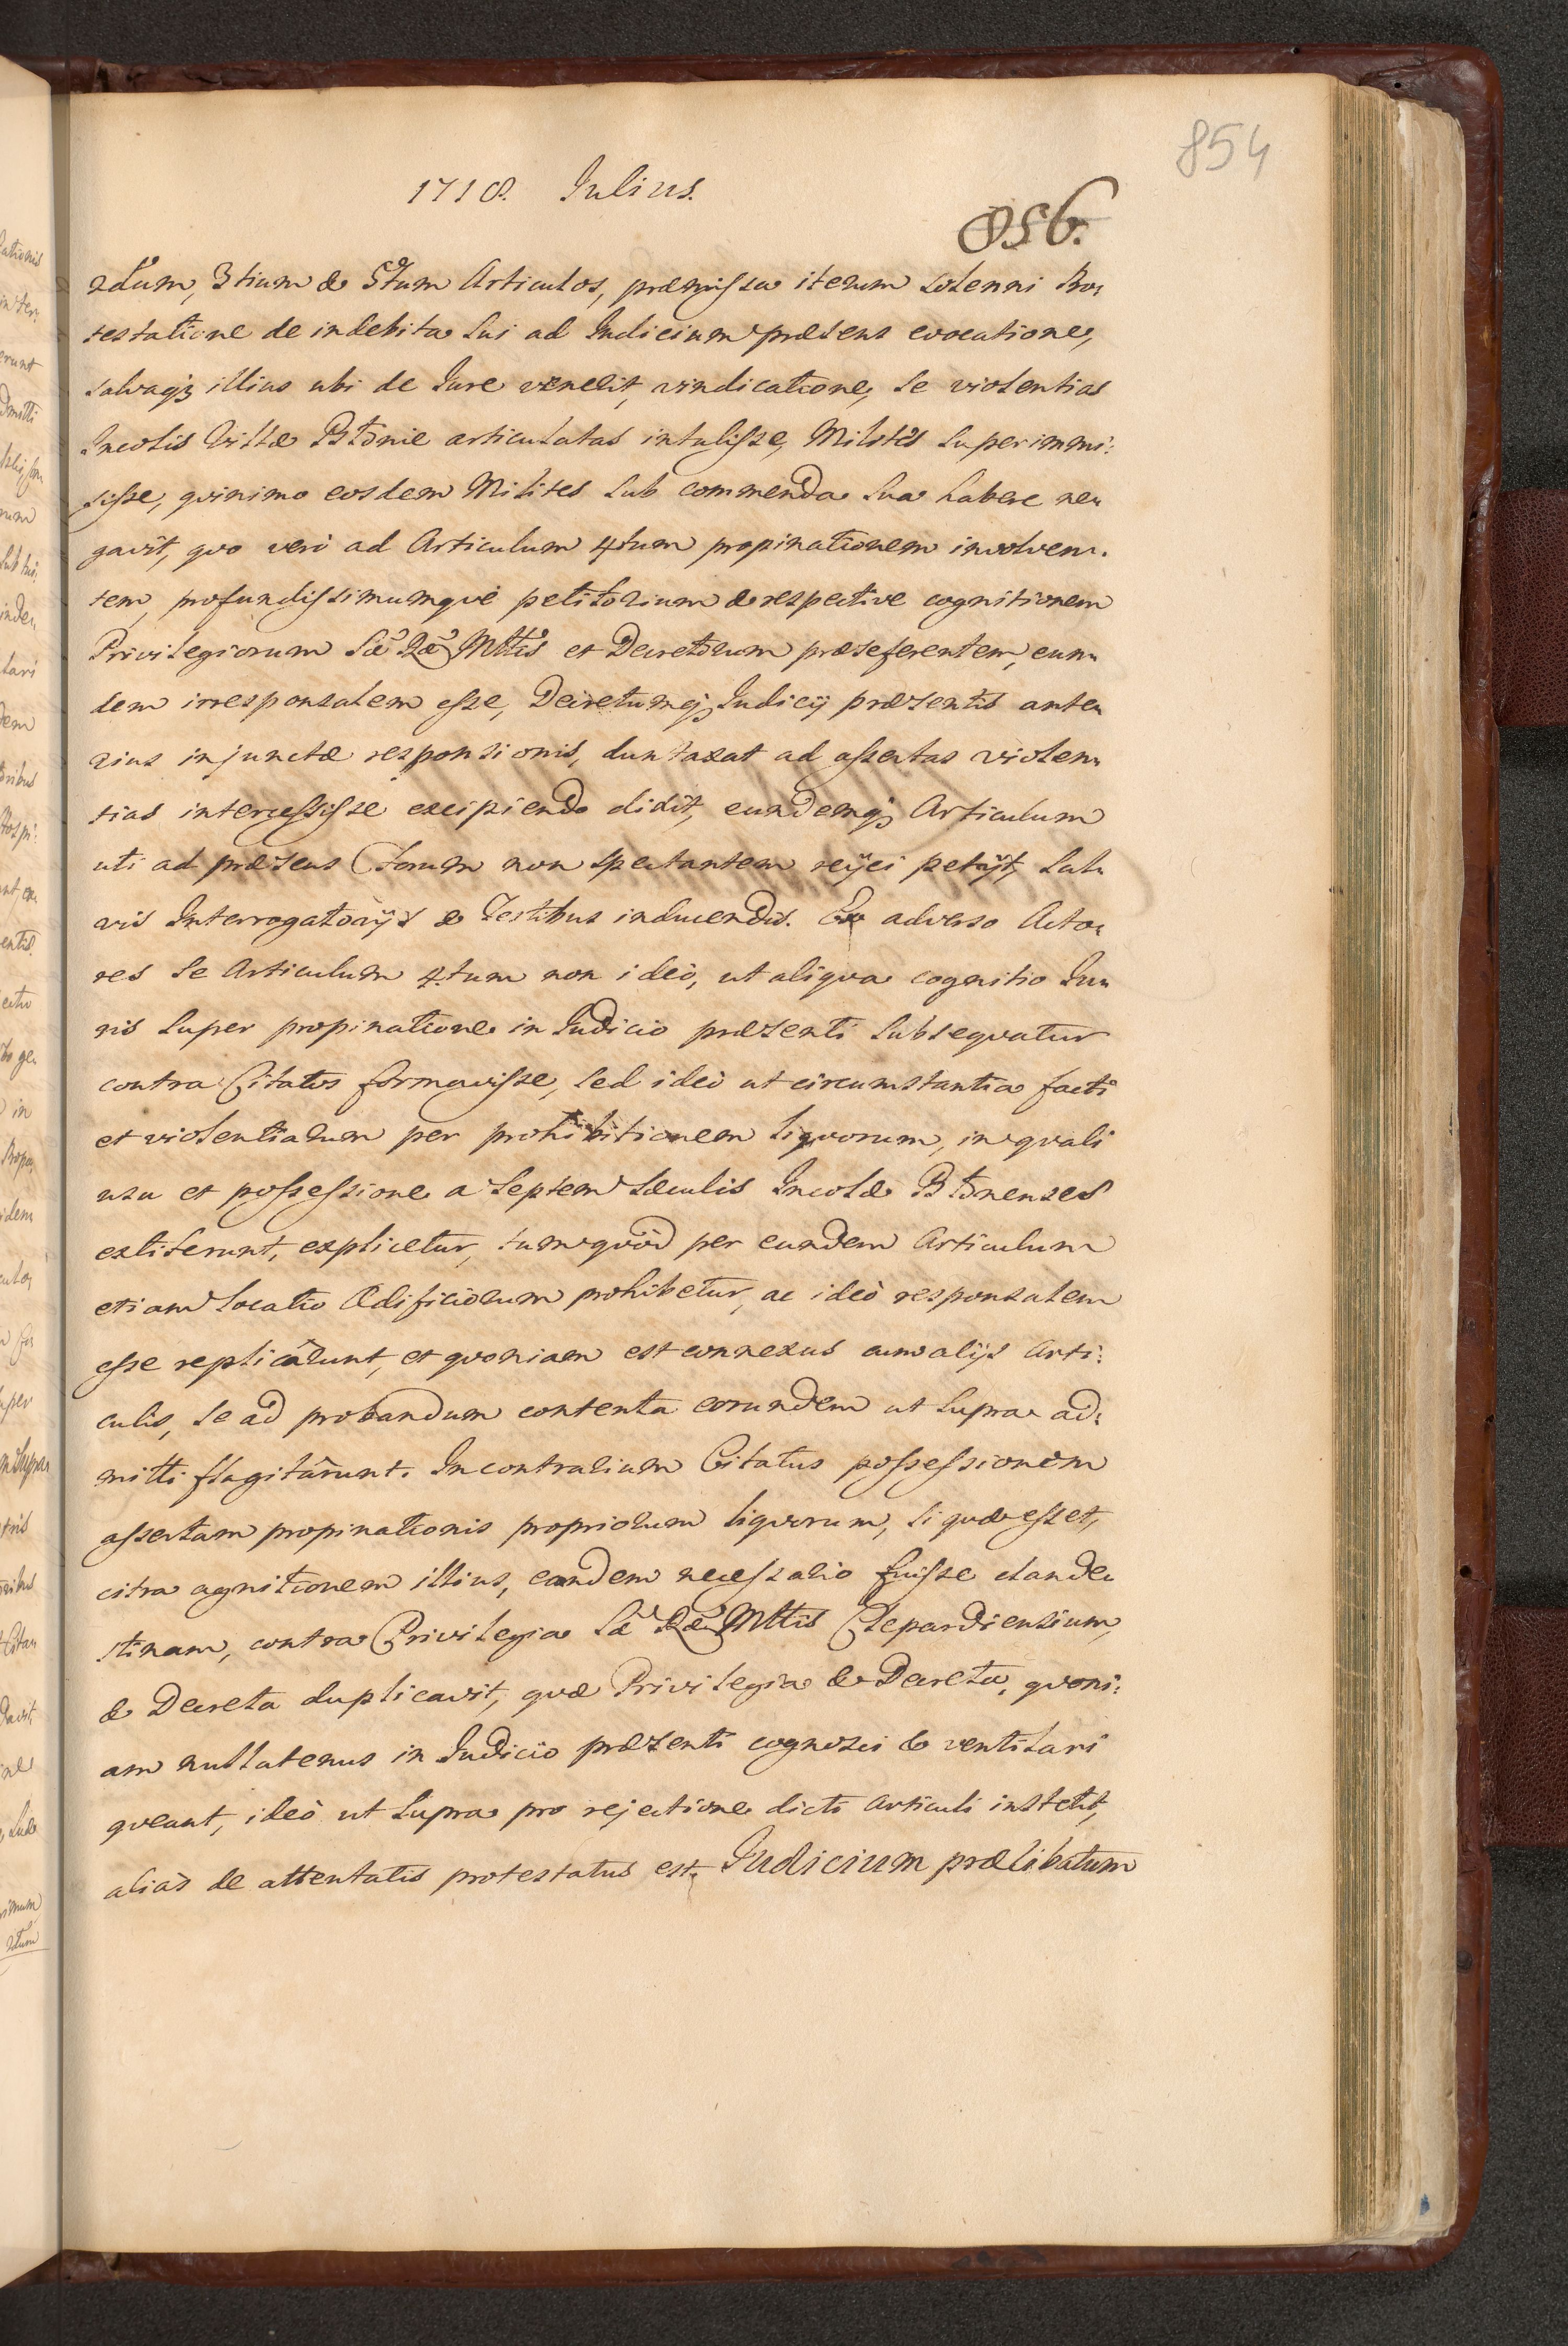 854
1718. Julius.
856.
2dum, 3tium & 5tum Articulos, præmissa iterum solenni Pro„
testatione de indebita sui ad Judicium præsens evocatione,
salvaq3 illius ubi de Jure venerit, vindicatione, se violentias
Incolis Villæ Btõnie articulatas intulisse, Milites superimmi:
sisse, quinimo eosdem Milites sub commenda sua habere ne„
gavit, quo verò ad Articulum 4tum propinationem involven„
tem, profundissimumqve petitorium & respective cognitionem
Privilegiorum Sæ Ræ Mttis et Decretorum præseferentem, eun„
dem irresponsalem esse, Decretumq3 Judicÿ præsentis ante„
rius injunctæ responsionis, duntaxat ad assertas violen„
tias intercessisse excipiendo dixit, eundemq3 Articulum
uti ad præsens Forum non spectantem reÿci petÿt, sal„
vis Interrogatorÿs & Testibus inducendis. Ex adverso Acto„
res se Articulum 4.tum non ideò, ut aliqva cognitio Iu„
ris super propinatione in Judicio præsenti subseqvatur
contra Citatos formavisse, sed ideò ut circumstantia facti
et violentiarum per prohibitionem liqvorum, in qvali
usu et possessione a septem sæculis Incolæ Btõnenses
extiterunt, explicetur, tum qvòd per eundem Articulum
etiam Locatio Ædificiorum prohibetur, ac ideò responsalem
esse replicârunt, et qvoniam est connexus cum alÿs Arti:
culis, se ad probandum contenta eorundem ut supra ad:
mitti flagitârunt. In contrarium Citatus possessionem
assertam propinationis propriorum liqvorum, si qvæ esset,
citra agnitionem illius, eandem necessario fuisse clande„
stinam, contra Privilegia Sæ Ræ Mttis Clepardiensium,
& Decreta duplicavit, qvæ Privilegia & Decreta, qvoni:
am nullatenus in Judicio præsenti cognosci & ventilari
qveant, ideò ut supra pro rejectione dicti Articuli institit,
aliàs de attentatis protestatus est. Judicium prælibatum